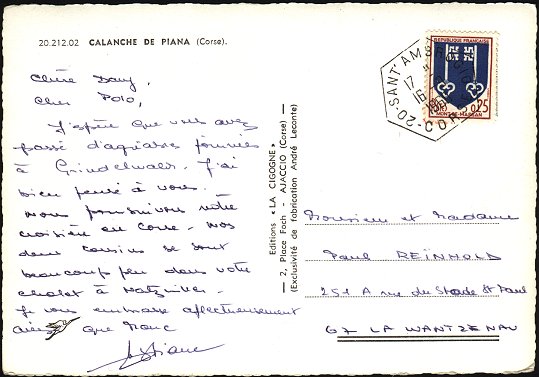 20.212.02 CALANCHE DE PIANA (Corse).
Chère Dany,
Cher Polo,
J'espère que vous avez
passé d'agréables journées
à Grindelwald. J'ai
bien pensé à vous.
Nous poursuivons notre
croisière en Corse. Nos
deux cousins se sont
beaucoup plu dans votre
chalet à
Je vous embrasse affectueusement
ainsi que Marc
Editions « LA CIGOGNE »
— 2, Place Foch - AJACCIO (Corse) —
(Exclusivité de fabrication André Leconte)
REPUBLIQUE FRANÇAISE
0,25
MONT-DE-MARSAN
20-SANT'AMBROGIO
17 H
16
CORSE
Monsieur et Madame
Paul REINHOLD
251 A rue du Stade St Paul
67 LA WANTZENAU